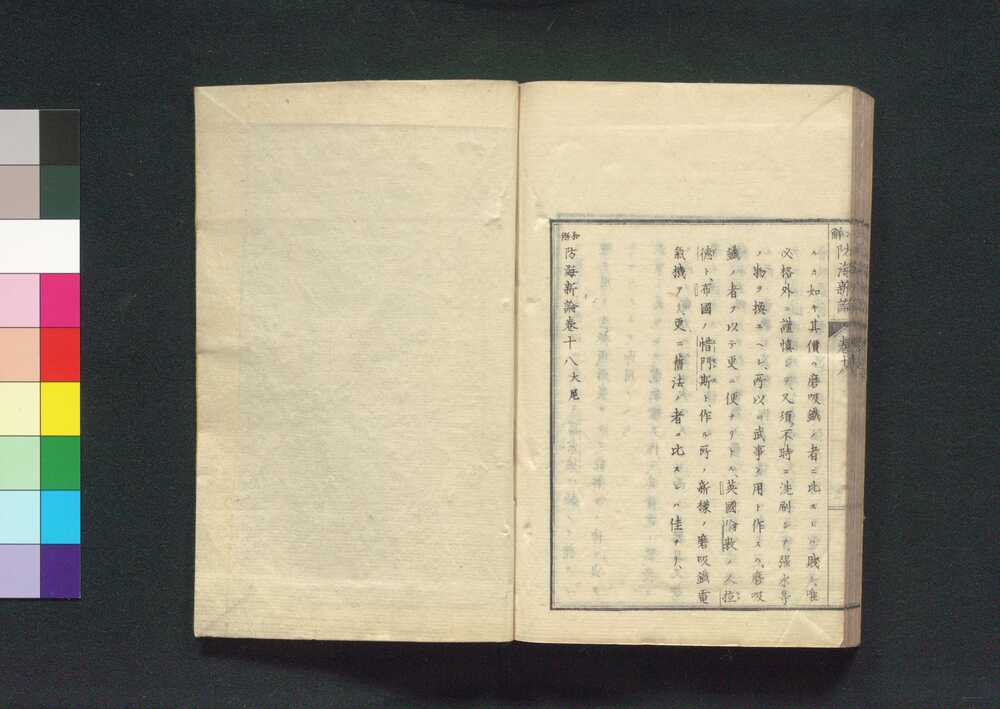 ルカ如キ、其價ハ磨吸鐵ノ者ニ比スレハ賎シ、唯
必格外ニ謹慎シテ、又須不時ニ洗刷シテ、強水等
ノ物ヲ換ユヘシ、所以ニ武事ノ用ト作スハ、磨吸
鐵ノ者ヲ以テ更ニ便ナリトス、英國倫敦ノ
德ト、布國ノ惜門斯ト、作ル所ノ新樣ノ磨吸鐵電
氣機ヲ、更ニ舊法ノ者ニ比スレハ佳ナリ、
和解 防海新論卷十八大尾
解 防海新論 卷十八